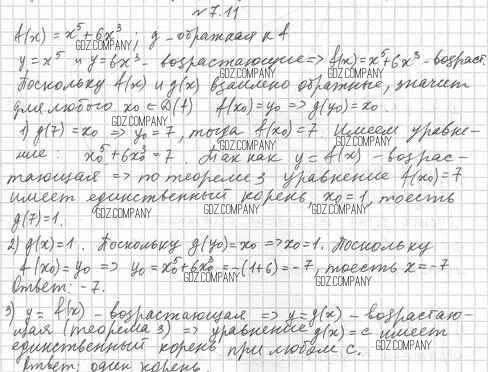 №7.11
f(x) = x⁵+6x³; g - обратная к f
GDZ.COMPANY
y = x⁵ и y=6x³ - возрастающие => f(x)=x⁵+6x³ - возраст.
GDZ.COMPANY GDZ.COMPANY
Поскольку f(x) и g(x) взаимно обратные, значит
для любого x₀ ∈ D(f) f(x₀)=y₀ => g(y₀)=x₀.
GDZ.COMPANY
1) g(7)=x₀ => y₀=7, тогда f(x₀)=7. Имеем уравне-
ние: x₀⁵+6x₀³=7. Так как y=f(x) - возрас-
GDZ.COMPANY GDZ.COMPANY
тающая => по теореме 3 уравнение f(x₀)=7
имеет единственный корень, x₀=1, то есть
GDZ.COMPANY GDZ.COMPANY GDZ.COMPANY
g(7)=1.
2) g(x)=1. Поскольку g(y₀)=x₀ => x₀=1. Поскольку
f(x₀)=y₀ => y₀=x₀⁵+6x₀³=-(1+6)=-7, то есть x=-7
GDZ.COMPANY GDZ.COMPANY
Ответ: -7.
3) y=f(x) - возрастающая => y=g(x) - возрастаю-
GDZ.COMPANY GDZ.COMPANY
щая (теорема 3) => уравнение g(x)=c имеет
единственный корень при любом c.
GDZ.COMPANY GDZ.COMPANY
Ответ: один корень.